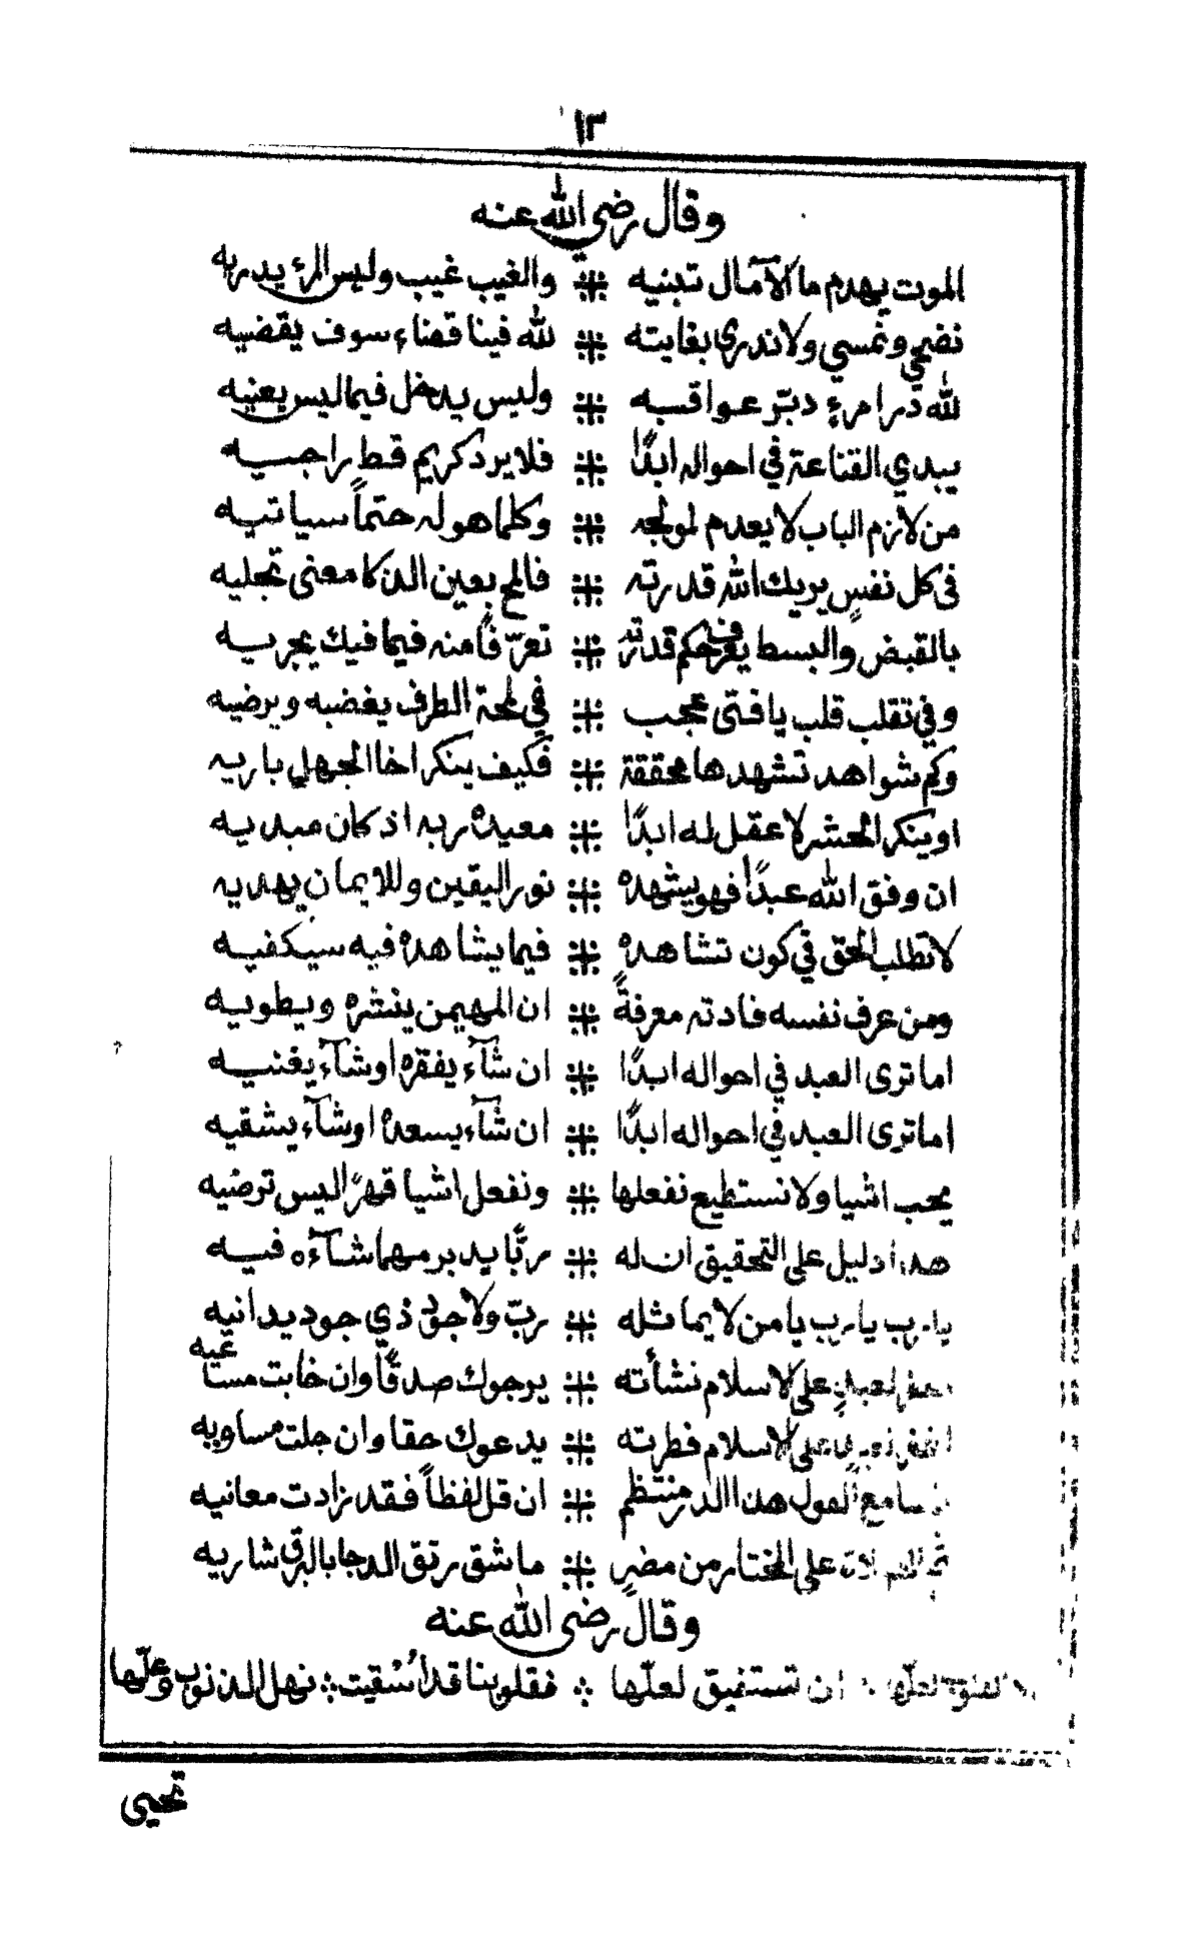 ١٣
وقال رضي الله عنه
الموت يهدم ما الآمال تبنيه ⁜ والغيب غيب وليس المرء يدريه
نضحي ونمسي ولا ندري بغايته ⁜ لله فينا قضاء سوف يقضيه
لله در امرءٍ دبّر عواقبه ⁜ وليس يدخل فيما ليس يعنيه
يبدي القناعة في احواله ابدًا ⁜ فلا يرد كريم قط راجيه
من لازم الباب لا يعدم لمولجه ⁜ وكلما هوله حتماً سياتيه
في كل نفسٍ يريك الله قدرته ⁜ فالمح بعين الذكا معنى تجليه
بالقبض والبسط يعرف حكم قدرته ⁜ تعرّفًا منه فيما فيك يجريه
وفي تقلب قلب يا فتى عجب ⁜ في لمحة الطرف يغضبه ويرضيه
وكم شواهد تشهدها محققة ⁜ فكيف ينكر اخا الجهل باريه
او ينكر الحشر لا عقل له ابدًا ⁜ معيده ربه اذ كان مبديه
ان وفق الله عبدًا فهو يشهده ⁜ نور اليقين وللايمان يهديه
لا تطلب الحق في كون تشاهده ⁜ فيما يشاهده فيه سيكفيه
ومن عرف نفسه فادته معرفةً ⁜ ان المهيمن ينشره ويطويه
اما ترى العبد في احواله ابدًا ⁜ ان شآء يفقره او شآء يغنيه
اما ترى العبد في احواله ابدًا ⁜ ان شآء يسعده او شآء يشقيه
يحب اشيا ولا نستطيع نفعلها ⁜ ونفعل اشيا قهرًا ليس ترضيه
هذا دليل على التحقيق ان له ⁜ ربًّا يدبر مهما شآءه فيه
يا رب يا رب يا من لا يماثله ⁜ ربّ ولا جود ذي جود يدانيه
لعبدٍ على الاسلام نشأته ⁜ يرجوك صدقًا وان خابت مساعيه
على الاسلام فطرته ⁜ يدعوك حقا وان جلت مساويه
سامع القول هذا الدر منتظم ⁜ ان قل لفظاً فقد زادت معانيه
ثم الصلاة على المختار من مضرٍ ⁜ ما شق رتق الدجا بالبرق شاريه
وقال رضي الله عنه
لعلّها ⁘ ان تستفيق لعلّها ⁘ فقلوبنا قد اُسْقيت ⁘ نهل الذنوب وعلّها
تحيى